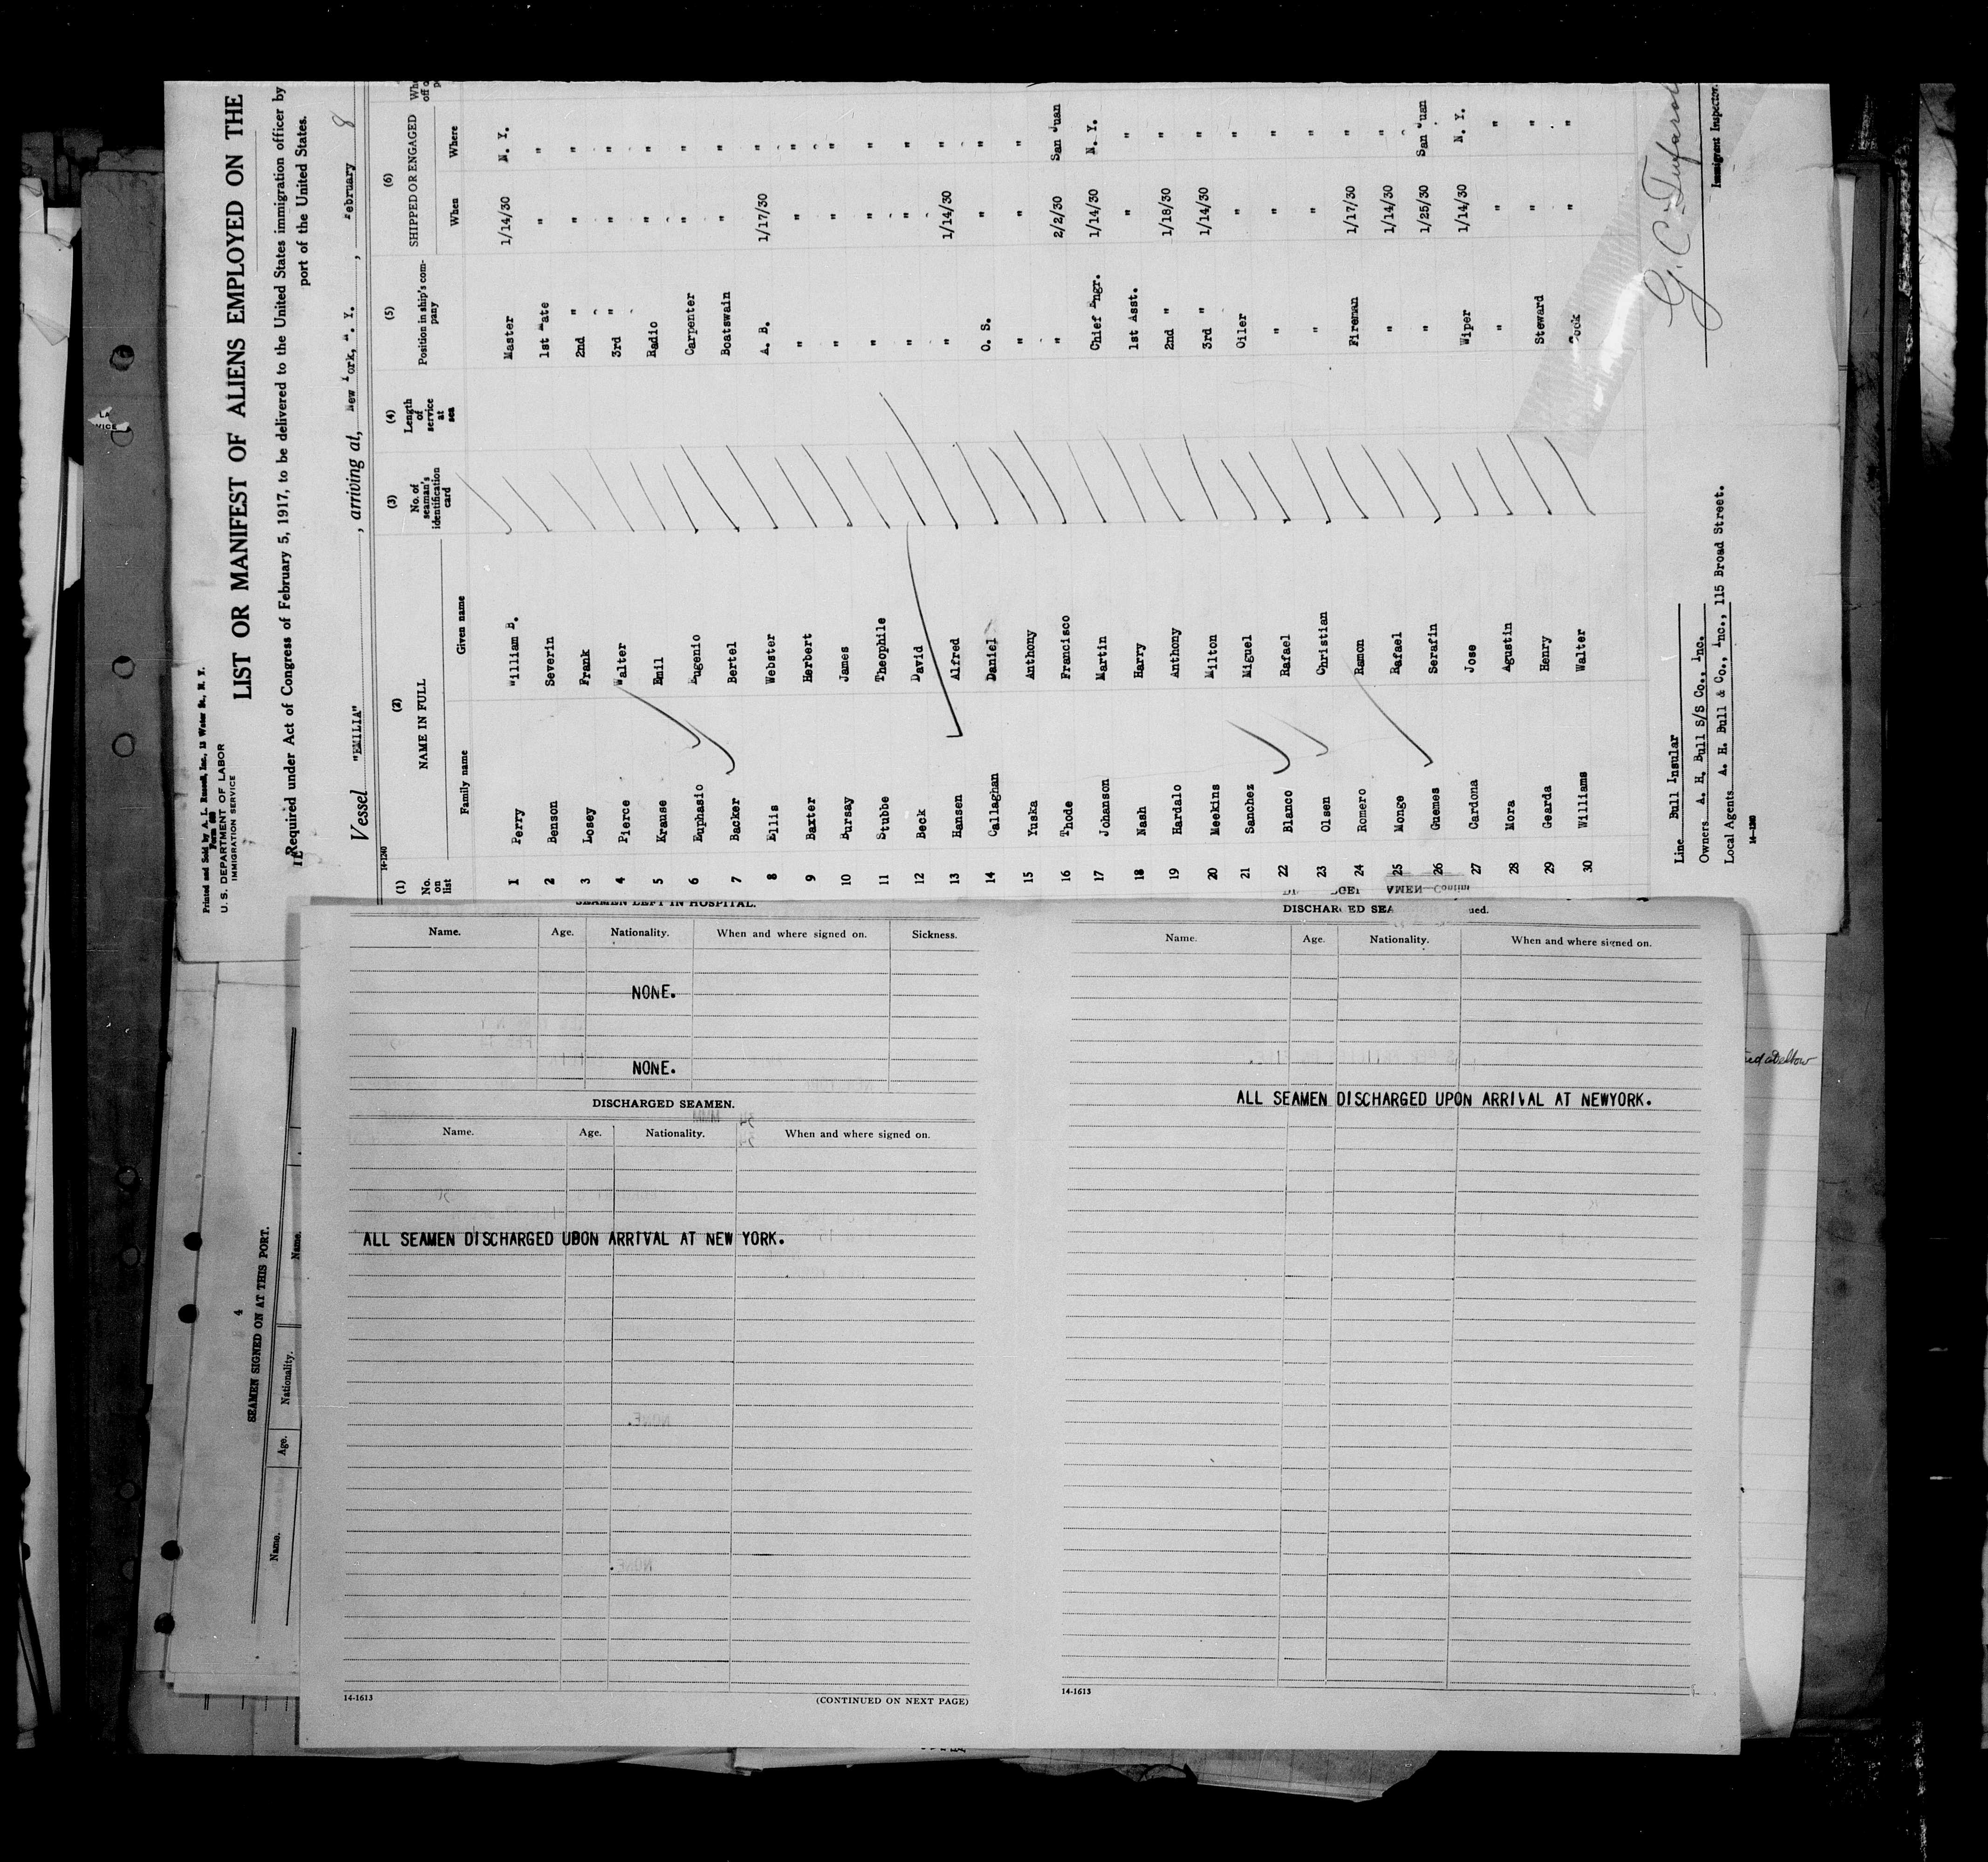 Printed and Sold by A. L. Russell, Inc., 13 Water St., N. Y.
U. S. DEPARTMENT OF LABOR
IMMIGRATION SERVICE
LIST OR MANIFEST OF ALIENS EMPLOYED ON THE
Required under Act of Congress of February 5, 1917, to be delivered to the United States immigration officer by
port of the United States.
Vessel "EMILIA", arriving at, New York, N. Y., February 8
14-1240
(1) No. on list (2) NAME IN FULL (3) No. of seaman's identification card (4) Length of service at sea (5) Position in ship's company (6) SHIPPED OR ENGAGED
Family name Given name When Where
1 Perry William B. Master 1/14/30 N. Y.
2 Benson Severin 1st Mate " "
3 Losey Frank 2nd " " "
4 Pierce Walter 3rd " " "
5 Krause Emil Radio " "
6 Euphasio Eugenio Carpenter " "
7 Backer Bertel Boatswain " "
8 Ellis Webster A. B. 1/17/30 "
9 Baxter Herbert " " "
10 Bursay James " " "
11 Stubbe Theophile " " "
12 Beck David " " "
13 Hansen Alfred " 1/14/30 "
14 Callaghan Daniel O. S. " "
15 Yuska Anthony " " "
16 Thode Francisco " 2/2/30 San Juan
17 Johanson Martin Chief Engr. 1/14/30 N. Y.
18 Nash Harry 1st Asst. " "
19 Hardalo Anthony 2nd " 1/18/30 "
20 Meekins Milton 3rd " 1/14/30 "
21 Sanchez Miguel Oiler " "
22 Blanco Rafael " " "
23 Olsen Christian " " "
24 Romero Ramon Fireman 1/17/30 "
25 Monge Rafael " 1/14/30 "
26 Guemes Serafin " 1/25/30 San Juan
27 Cardona Jose Wiper 1/14/30 N. Y.
28 Mora Agustin " " "
29 Gearda Henry Steward " "
30 Williams Walter Cook " "
Line Bull Insular
Owners A. H. Bull S/S Co., Inc.
Local Agents A. H. Bull & Co., Inc., 115 Broad Street.
14-1240
Immigrant Inspector.
SEAMEN LEFT IN HOSPITAL.
Name. Age. Nationality. When and where signed on. Sickness.
NONE.
NONE.
DISCHARGED SEAMEN.
Name. Age. Nationality. When and where signed on.
ALL SEAMEN DISCHARGED UPON ARRIVAL AT NEW YORK.
14-1613
(CONTINUED ON NEXT PAGE)
Name. Age. Nationality. When and where signed on.
ALL SEAMEN DISCHARGED UPON ARRIVAL AT NEWYORK.
14-1613
4
SEAMEN SIGNED ON AT THIS PORT.
Name. Age. Nationality. Name.